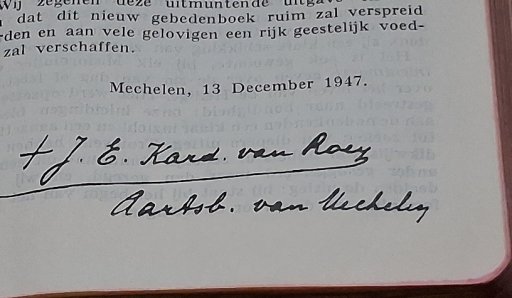 Wij zegenen deze uitmuntende uitgave
dat dit nieuw gebedenboek ruim zal verspreid
rden en aan vele gelovigen een rijk geestelijk voed-
zal verschaffen.
Mechelen, 13 December 1947.
+ J. E. Kard. van Roey
Aartsb. van Mechelen